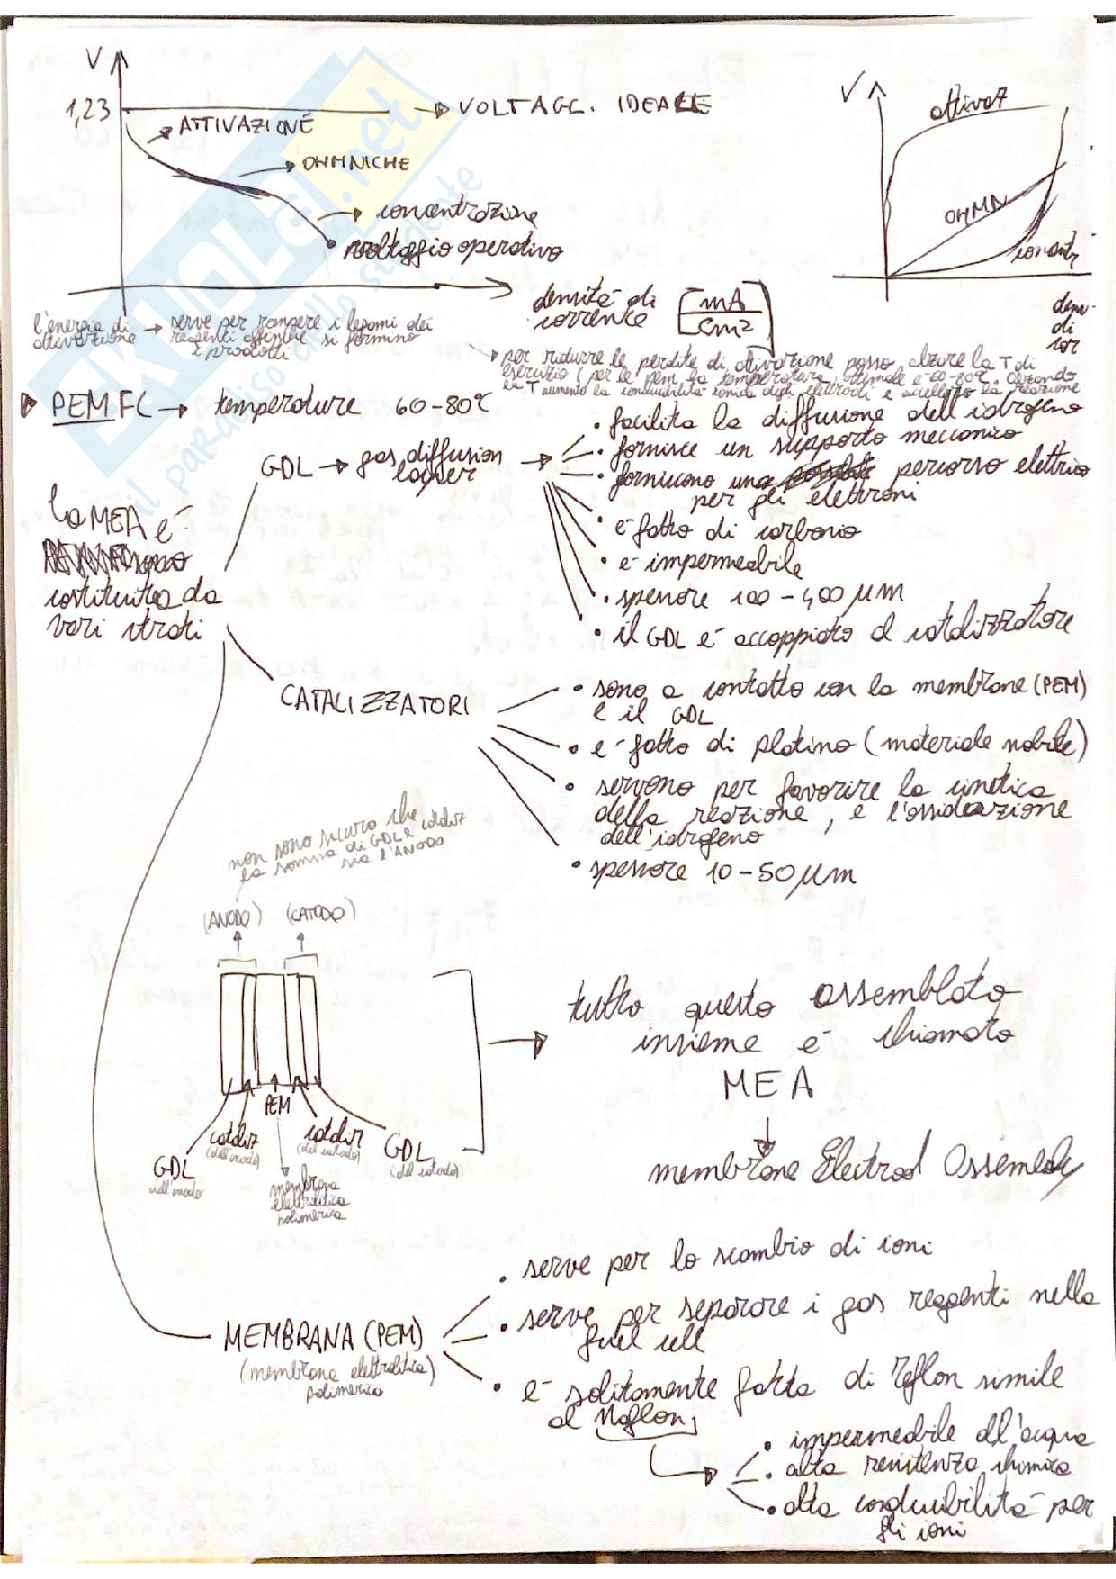 V
1,23
VOLTAGG. IDEALE
ATTIVAZIONE
OHMNICHE
concentrazione
voltaggio operativo
densità di corrente [mA/cm2]
V
attivaz
OHMN
concentr
densi-
di
cor
l'energia di attivazione → serve per rompere i legami dei
reagenti affinchè si formino
i prodotti
per ridurre le perdite di attivazione posso alzare la T di
esercizio (per le pem la temperatura ottimale è 60-80°C. Alzando
la T aumento la conducibilità ionica degli elettrodi e accellero la reazione
PEMFC → temperature 60-80°C
GDL → gas diffusion
layer
• facilita la diffusione dell'idrogeno
• fornisce un supporto meccanico
• forniscono un percorso elettrico
per gli elettroni
• è fatto di carbonio
• è impermeabile
• spessore 100-400 μm
• il GDL è accoppiato al catalizzatore
La MEA è
costituita da
vari strati
CATALIZZATORI
• sono a contatto con la membrana (PEM)
e il GDL
• è fatto di platino (materiale nobile)
• servono per favorire la cinetica
della reazione, e l'ossidazione
dell'idrogeno
• spessore 10-50 μm
non sono sicuro che
la somma di GDL e cataliz
sia l'ANODO
(ANODO) (CATODO)
PEM
cataliz
(dell'anodo)
cataliz
(del catodo)
GDL
nell'anodo
GDL
(del catodo)
membrana
elettrolitica
polimerica
tutto questo assemblato
insieme è chiamato
MEA
membrane Electrod Assembly
MEMBRANA (PEM)
(membrana elettrolitica)
polimerica
• serve per lo scambio di ioni
• serve per separare i gas reagenti nella
fuel cell
• è solitamente fatta di Teflon simile
al Naflon
• impermeabile all'acqua
• alta resistenza chimica
• alta conducibilità per
gli ioni
SKUOLA.net
il paradiso dello studente